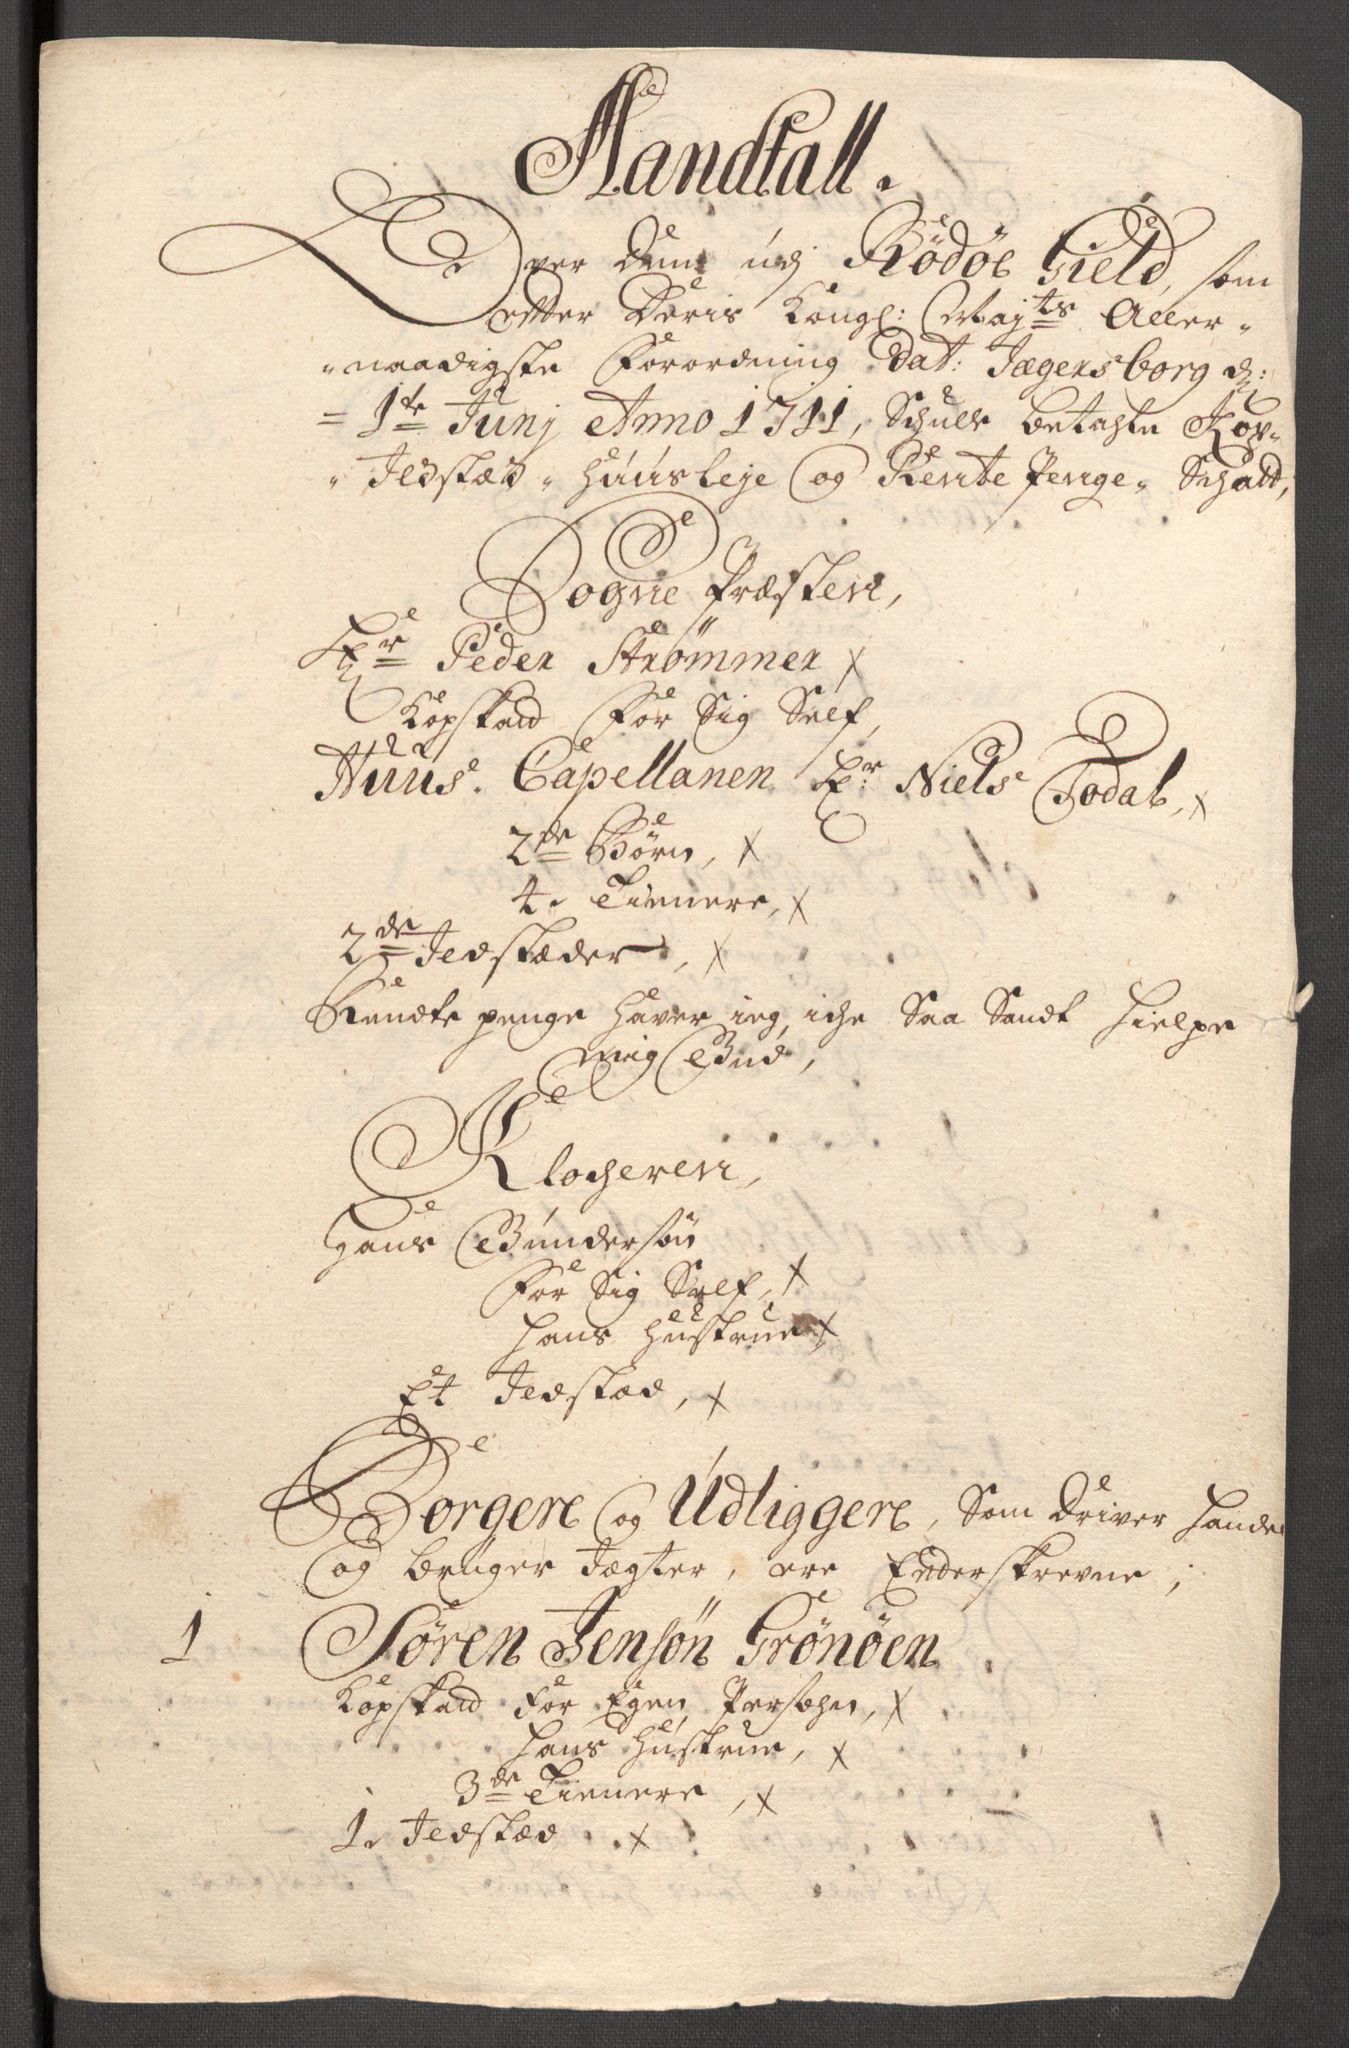 Mandtall.
Over dem udj Rödöe Gield, som
efter Deris Kongl: Maÿts Aller-
naadigste Forordning dat: Jægersborg d:
1te Junj Anno 1711, Schulle betahle Kop-
Ildstæd- huusleje og Rente Penge- Schatt,
Sogne Præsten,
Hr Peder Strömmer x
Kopskatt For Sig Self,
Huus. Capellanen Hr: Niels Todal, x
2de Børn, x
4. Tienere, x
2de Ildstæder, x
Rendte penge haver ieg iche Saa Sandt hielpe
mig Gud,
Klocheren,
Hans Gundersøn
For Sig Self, x
hans Hustrue x
Et Ildstæd, x
Borgere og Udliggere, Som Driver Handel
og bruger Jægter, ere Enderskrevne;
1 Søren Jensøn Grönöen
Kopskatt For Egen Persohn, x
hans Hustrue, x
3de Tienere, x
1. Ildstæd x